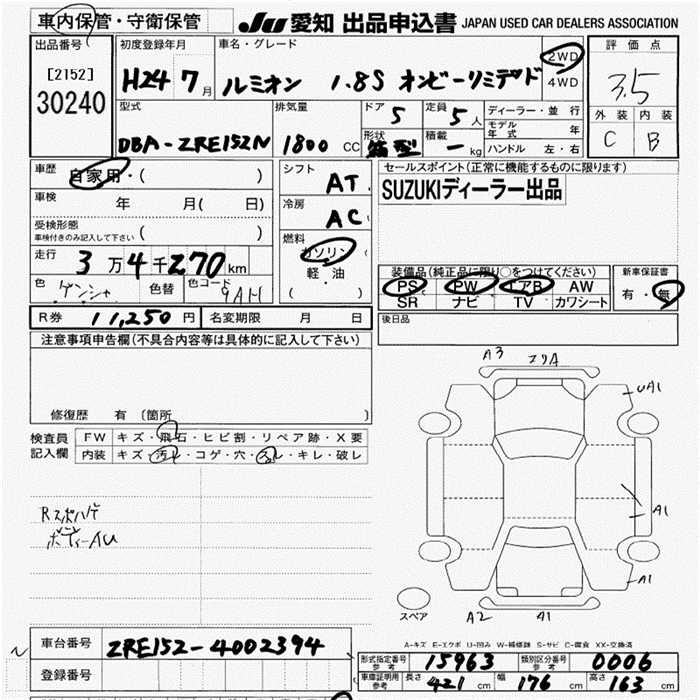 車内保管・守衛保管 JU 愛知 出品申込書 JAPAN USED CAR DEALERS ASSOCIATION
出品番号 初度登録年月 車名・グレード 評価点
[2152] 30240 H24年7月 ルミオン 1.8S オンビーリミテッド 2WD 4WD 3.5
型式 排気量 ドア 5 定員 5人 ディーラー・並行 外装 内装
DBA-ZRE152N 1800 CC 形状 箱型 積載 - kg モデル年式 年 C B
ハンドル 左・右
車歴 自家用・( ) シフト AT セールスポイント(正常に機能するものに限ります)
車検 年 月( 日) 冷房 AC SUZUKIディーラー出品
受検形態 車検付きのみ記入して下さい ( )
走行 3万4千270km 燃料 ガソリン 軽・油 ( )
装備品(純正品に限り○をつけてください) 新車保証書
色 ゲンシャ 色替 色コード 9AH PS PW エアB AW 有・無
SR ナビ TV カワシート
R券 11,250円 名変期限 月 日 後日品
注意事項申告欄(不具合内容等は具体的に記入して下さい)
修復歴 有 (箇所 )
検査員記入欄 FW キズ・飛石・ヒビ割・リペア跡・X要
内装 キズ・汚レ・コゲ・穴・スレ・キレ・破レ
A3
UA1
A1
A1
A2 A1
スペア
A-キズ E-エクボ U-凹み W-補修跡 S-サビ C-腐食 XX-交換済
車台番号 ZRE152-4002394
形式指定番号 参考 15963 類別区分番号 参考 0006
登録番号
車庫証明用 参考 長さ 421 cm 幅 176 cm 高さ 163 cm